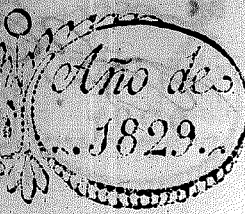 Año de
..1829..